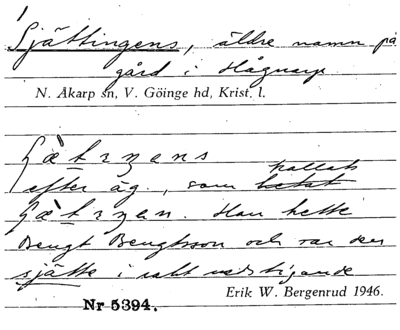 Sjättingens, äldre namn på
gård i Hågnarp
N. Åkarp sn, V. Göinge hd, Krist. l.
kallats
efter äg., som hetat
Han hette
Bengt Bengtsson och var den
sjätte i rakt nedstigande
Erik W. Bergenrud 1946.
Nr 5394.